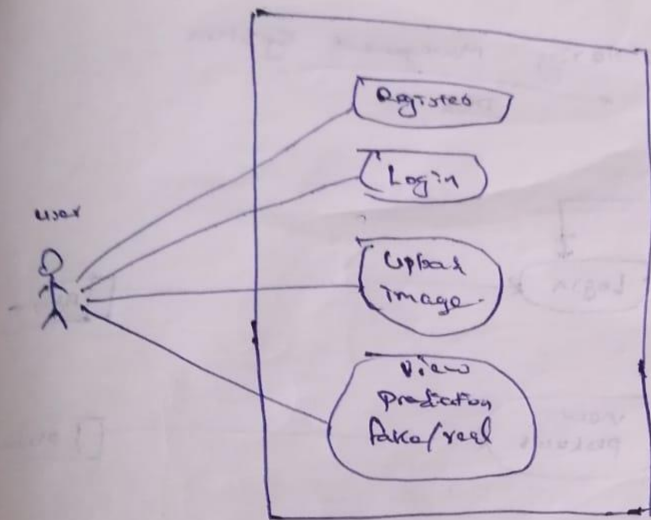 user
Register
Login
Upload
image
View
prediction
fake/real